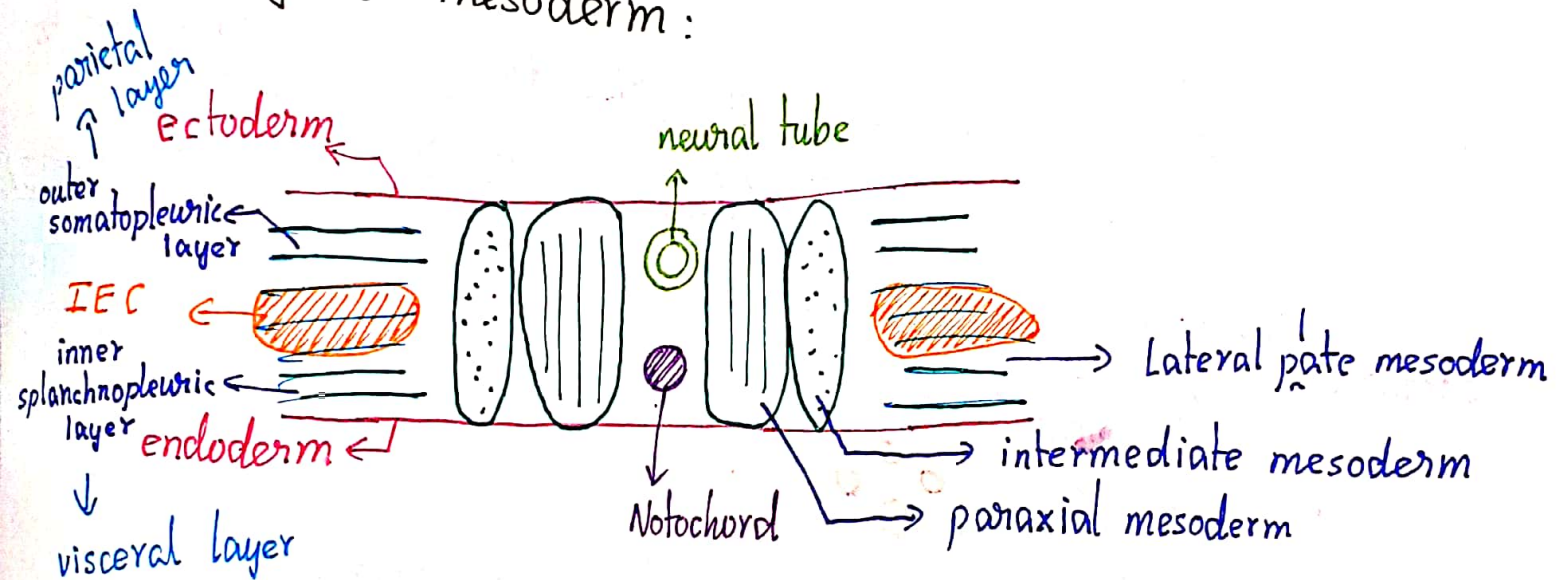 mesoderm :
parietal
layer
ectoderm
neural tube
outer
somatopleuric
layer
IEC
inner
splanchnopleuric
layer
endoderm
visceral layer
Notochord
Lateral pate mesoderm
l
intermediate mesoderm
paraxial mesoderm